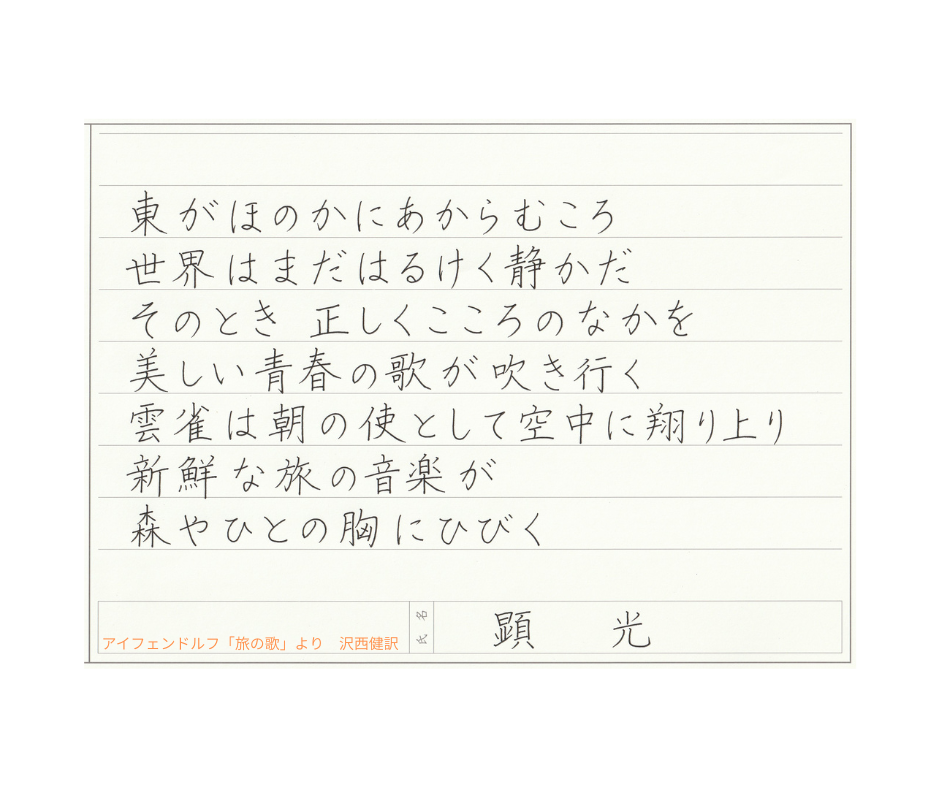 東がほのかにあからむころ
世界はまだはるけく静かだ
そのとき 正しくこころのなかを
美しい青春の歌が吹き行く
雲雀は朝の使として空中に翔り上り
新鮮な旅の音楽が
森やひとの胸にひびく
アイフェンドルフ「旅の歌」より 沢西健訳
氏名
顕 光